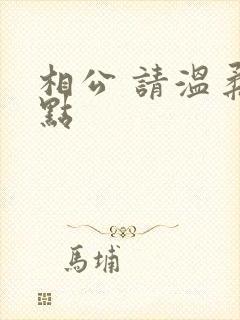 相公 請溫柔
點
馬埔